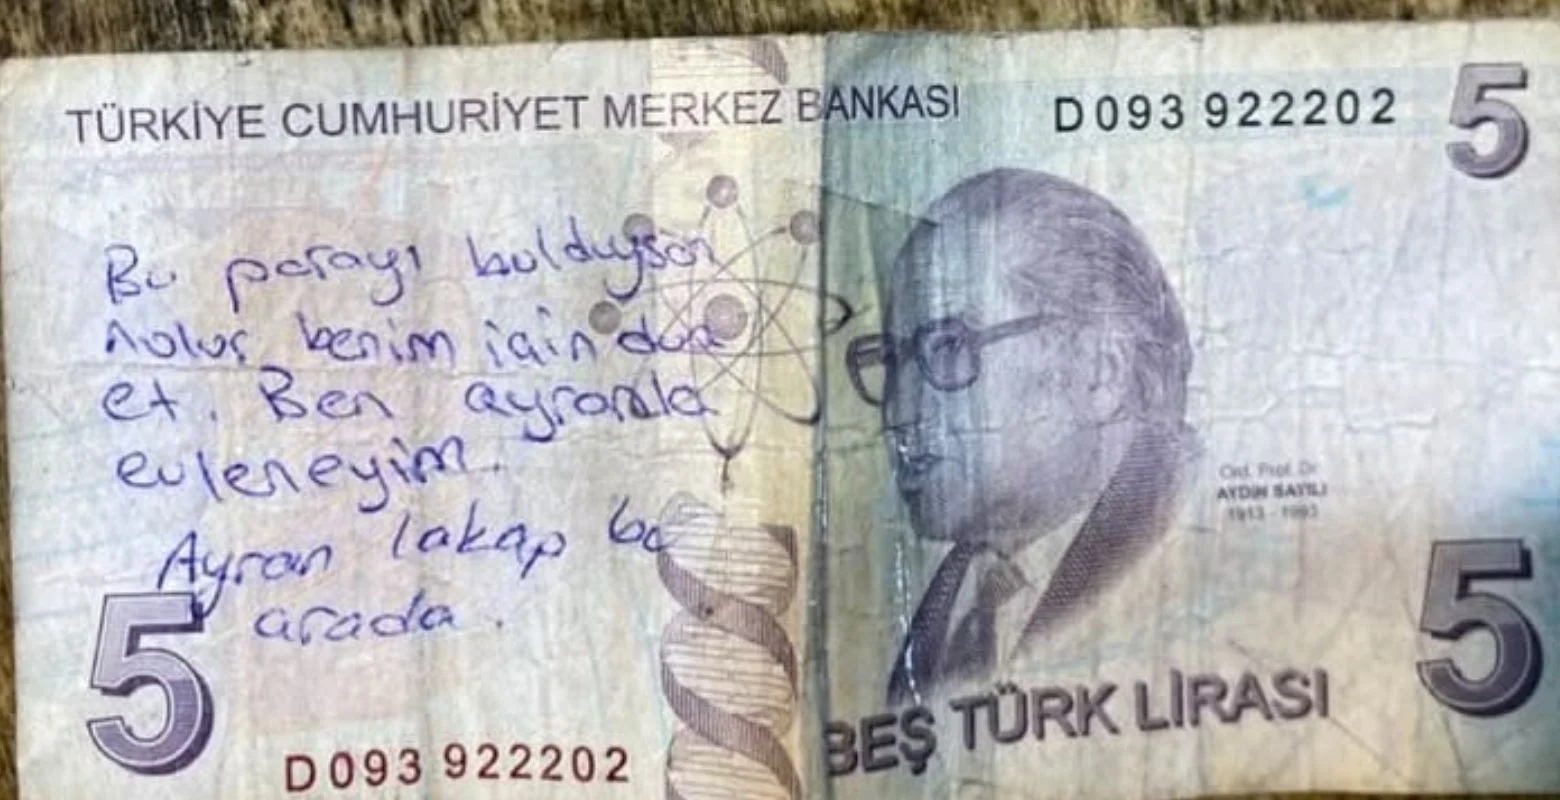 TÜRKİYE CUMHURİYET MERKEZ BANKASI
D093 922202
5
Bu parayı bulduysan
nolur benim için dua
et. Ben ayranla
evleneyim.
Ayran lakap bu
arada.
Ord. Prof. Dr.
AYDIN SAYILI
1913 - 1993
5
BEŞ TÜRK LİRASI
5
D093 922202